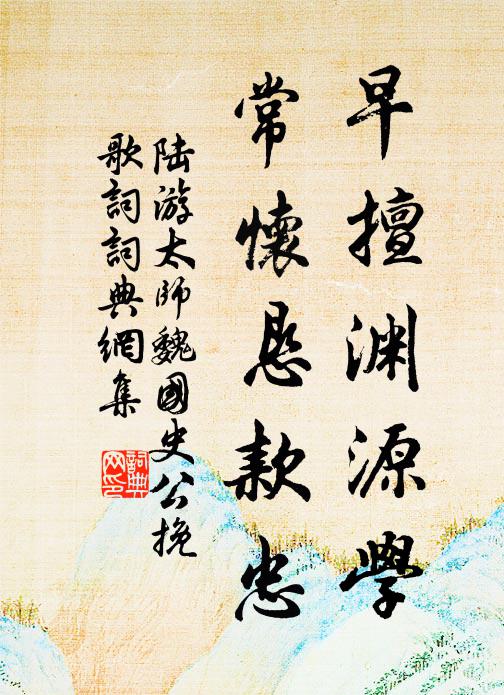 早擅渊源學
常懷恳款忠
陆游太師魏國史公挽
歌詞詞典網集
詞典
网印